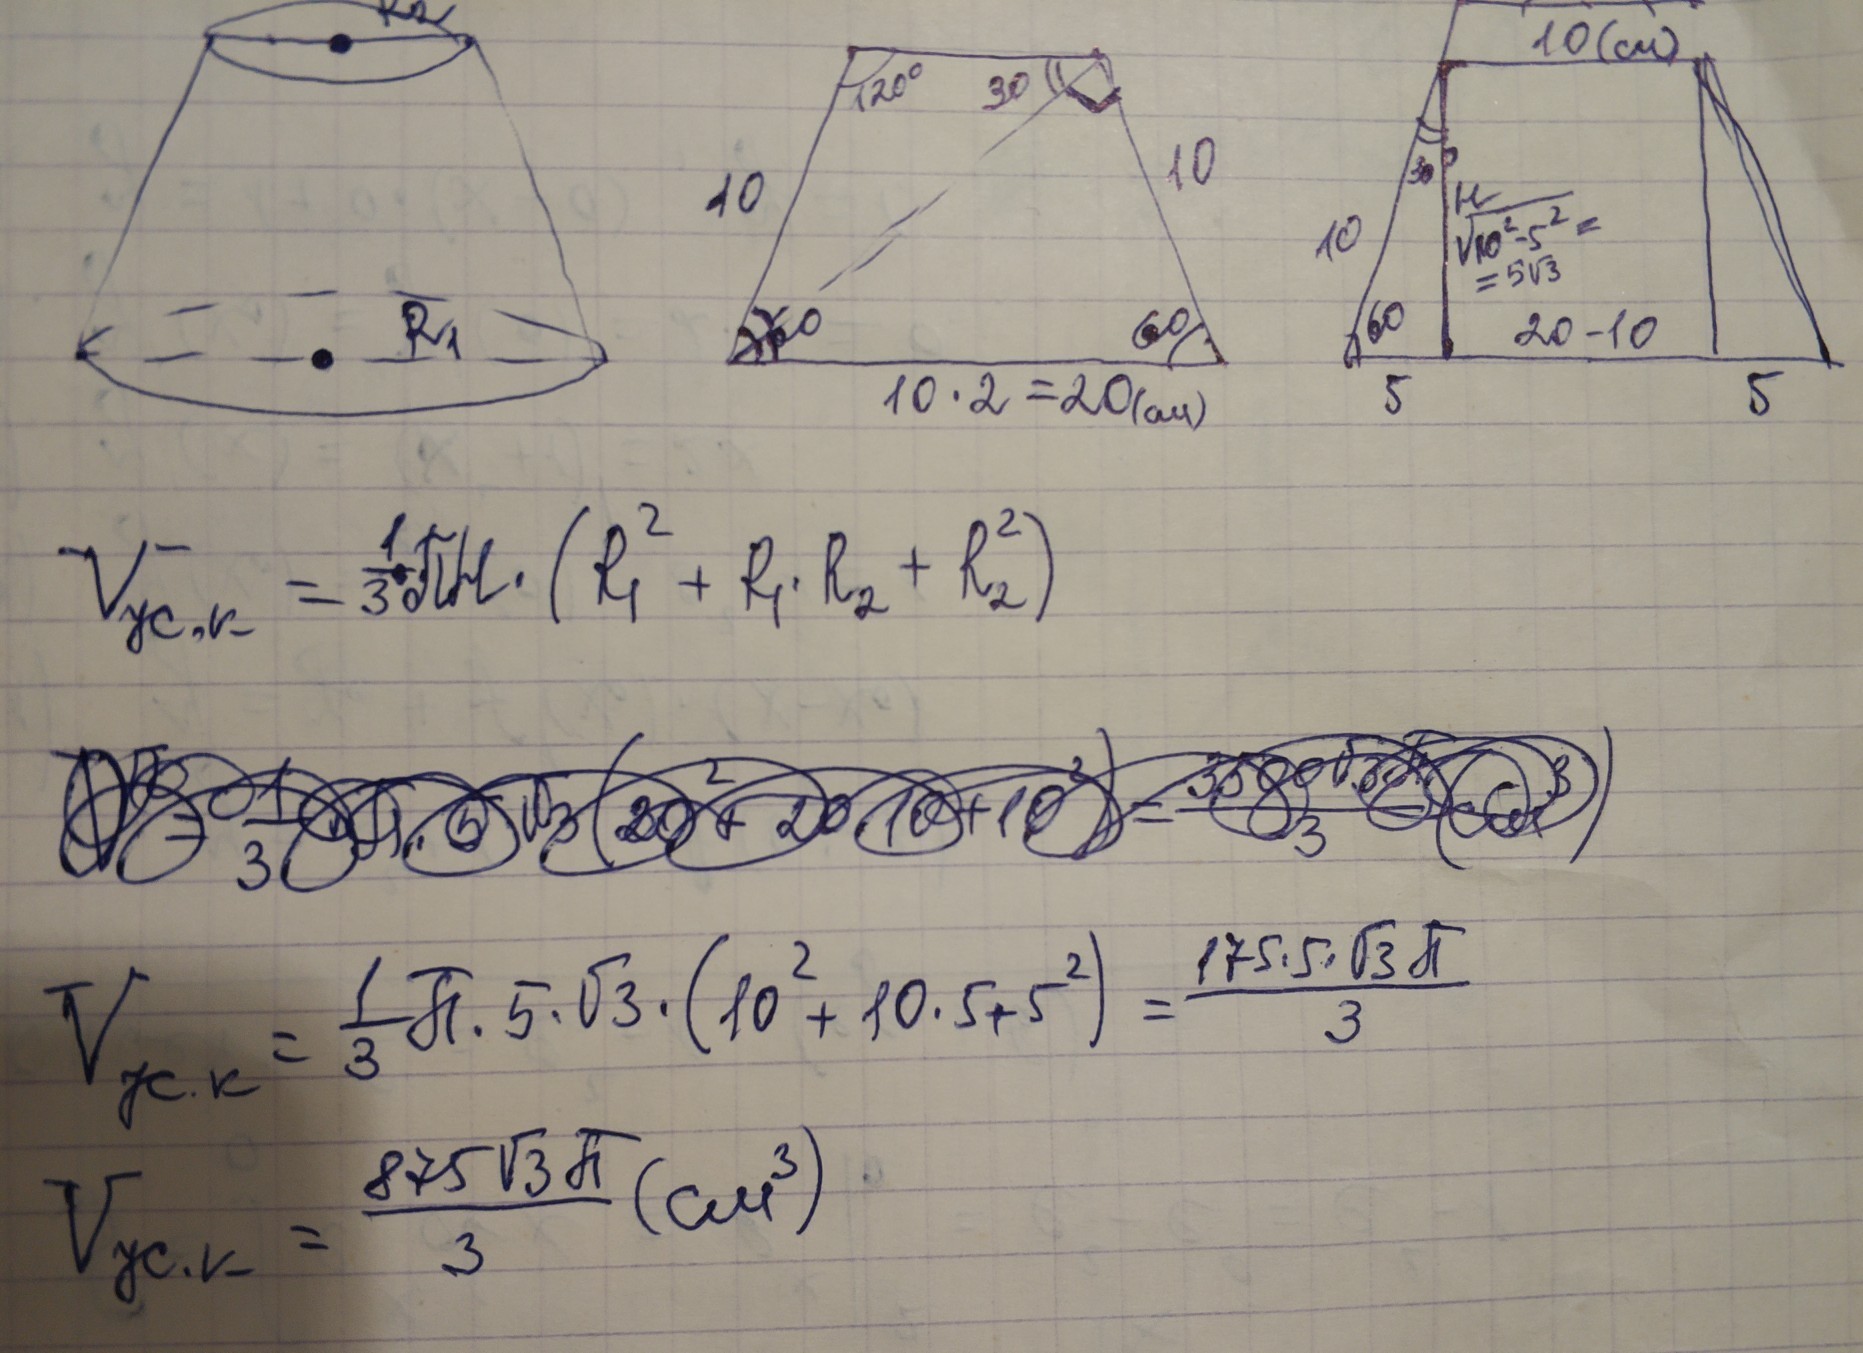 R₂
R₁
120°
30
10
10
60
60
10·2=20(см)
10(см)
30°
10
H
√10²-5² =
= 5√3
60
20-10
5
5
Vус.к = 1/3 πH·(R₁² + R₁·R₂ + R₂²)
Vус.к = 1/3 π·5·√3·(10² + 10·5+5²) = 175·5·√3π/3
Vус.к = 875√3π/3 (см³)